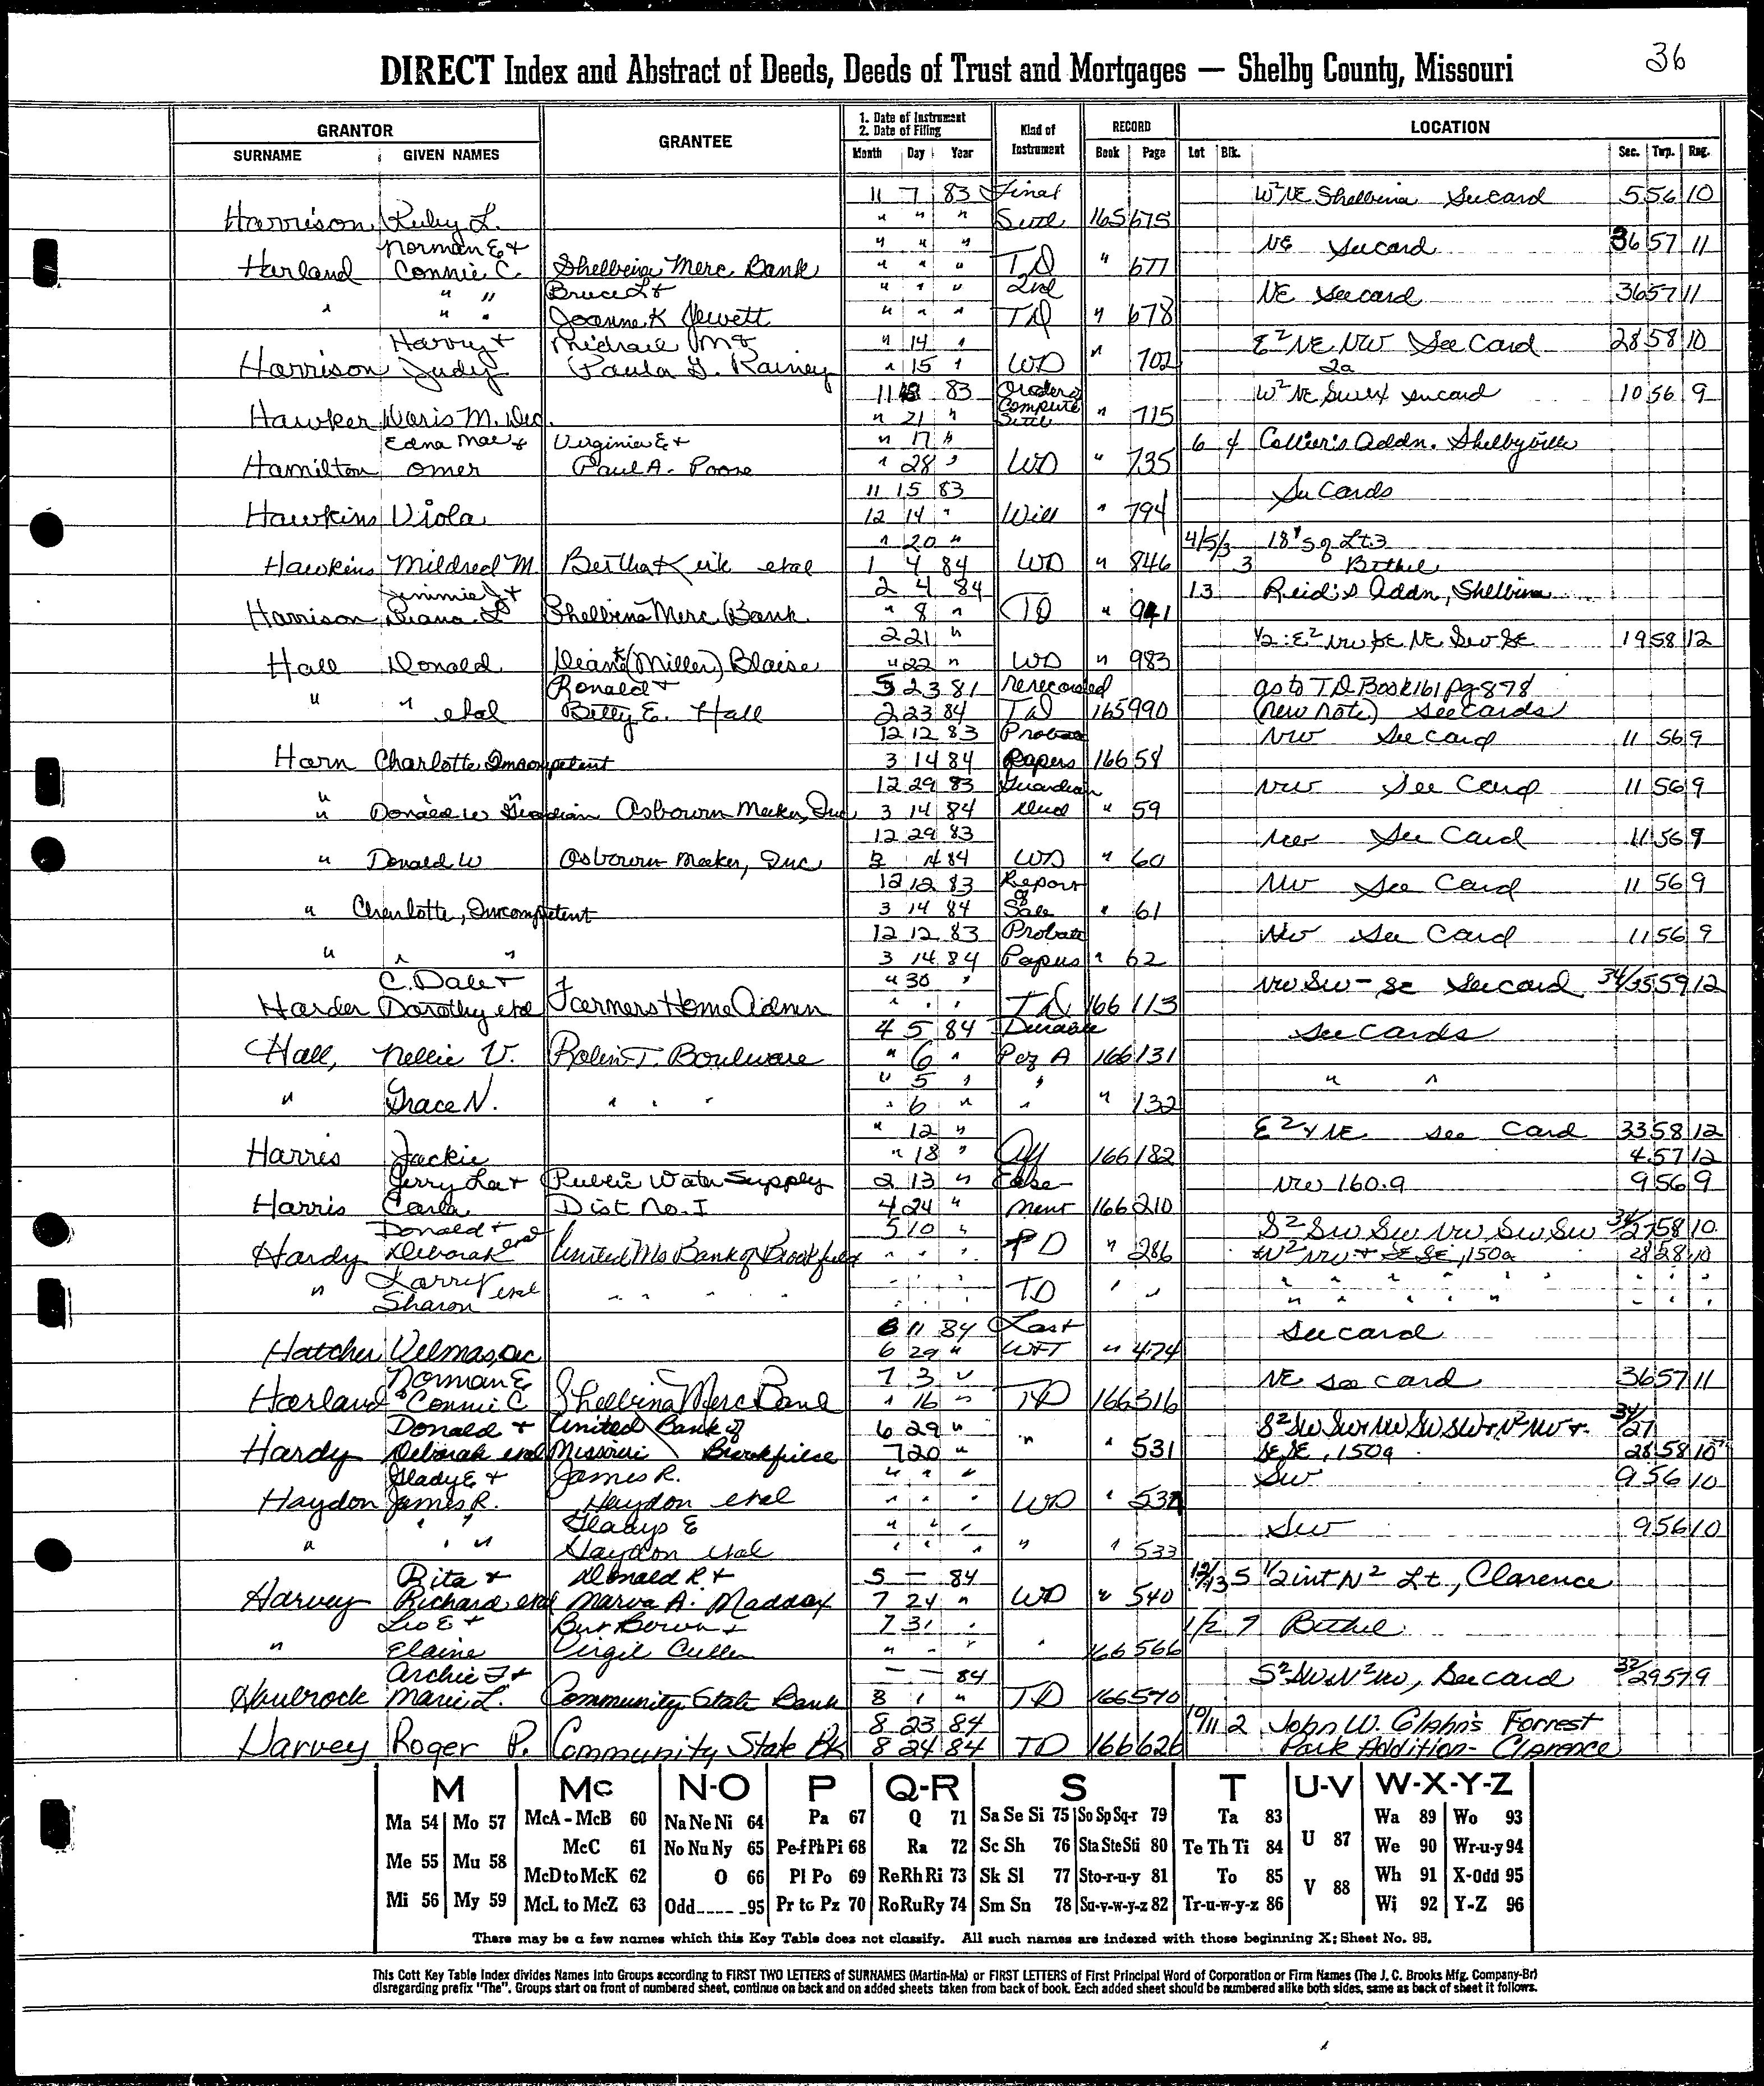 36
DIRECT Index and Abstract of Deeds, Deeds of Trust and Mortgages — Shelby County, Missouri
GRANTOR GRANTEE 1. Date of Instrument 2. Date of Filing Kind of Instrument RECORD LOCATION
SURNAME GIVEN NAMES Month Day Year Book Page Lot Blk. Sec. Twp. Rng.
11 7 83 Final W²NE Shelbina See card 5 56 10
Harrison Ruby L. " " " Settl 165 675
Norman E & " " " NE See card 36 57 11
Harland Connie C. Shelbina Merc. Bank " " " TD " 677
" " Bruce L & " " " 2nd NE See card 36 57 11
" " " Joanne K Jewett " " " TD " 678
Harry & Michael M & " 14 " E² NE NW See Card 28 58 10
Harrison Judy Paula G. Rainey " 15 " WD " 702 2a
11 18 83 Order of W² NE SW See card 10 56 9
Hawker Doris M. Dec. " 21 " Complete Settl " 715
Edna Mae & Virginia E & " 17 " 6 4 Collier's Addn. Shelbyville
Hamilton Omer Paul A. Poore " 28 " WD " 735
11 15 83 See Cards
Hawkins Viola 12 14 " Will " 794
" 20 " 4/5/3 18' Sq Lt 3
Hawkins Mildred M. Bertha Kirk etal 1 4 84 WD " 846 3 Bethel
Jimmie J & 2 4 84 13 Reid's Addn, Shelbina
Harrison Diana L Shelbina Merc. Bank " 8 " TD " 941
2 21 " ½: E² NW SE NE SW SE 19 58 12
Hall Donald Diane (Miller) Blaise " 22 " WD " 983
Ronald & 5 23 81 rerecorded as to T.D. Book 161 Pg 878
" " etal Betty E. Hall 2 23 84 TD 165 990 (new note) See cards
12 12 83 Probate NW See Card 11 56 9
Harn Charlotte Incompetent 3 14 84 Papers 166 58
" 12 29 83 Guardian NW See Card 11 56 9
" Donald W Guardian Osbourn Meeker, Inc 3 14 84 Deed " 59
12 29 83 NW See Card 11 56 9
" Donald W Osbourn Meeker, Inc 3 14 84 WD " 60
12 12 83 Report NW See Card 11 56 9
" Charlotte, Incompetent 3 14 84 of Sale " 61
12 12 83 Probate NW See Card 11 56 9
" " " 3 14 84 Papers " 62
C. Dale & " 30 " NW SW - SE See card 34/35 59 12
Harder Dorothy etal Farmers Home Admn " " " TD 166 113
4 5 84 Durable See Cards
Hall, Nellie V. Robin T. Boulware " 6 " P of A 166 131
" 5 " " " "
" Grace N. " " " " 6 " " " 132
" 12 " E² & NE See Card 33 58 12
Harris Jackie " 18 " Aff 166 182 4 57 12
Jerry Lee & Public Water Supply 2 13 " Ease- NW 160.9 9 56 9
Harris Carla Dist No. I 4 24 " ment 166 210
Donald & 5 10 " S² SW SW NW SW SW 34/27 58 10
Hardy Deborah etal United Mo Bank of Brookfield " " " TD " 286 W² NW & SE SE, 150a 28 28 10
" Larry etal " " " TD " " " " " " " "
Sharon " " " " " " " " " " " "
6 11 84 Last See card
Hatcher Velma, Dec 6 29 " W&T " 474
Norman E 7 3 " NE See card 36 57 11
Harland & Connie C Shelbina Merc Bank " 16 " TD 166 516
Donald & United Bank of 6 29 " S² SW SW & NW SW SW & N² NW & 34/27
Hardy Deborah etal Missouri Brookfield 7 20 " " " 531 SE SE, 150a 28 58 10
Glady E & James R. " " " SW 9 56 10
Haydon James R. Haydon etal " " " WD " 532
" " Gladys E " " " SW 9 56 10
" " " Haydon etal " " " " " 533
Rita & Donald R. & 5 — 84 12/13 5 ½ int N² Lt, Clarence
Harvey Richard etal Marva A. Maddox 7 24 " WD " 540
Leo E & 7 31 " 1/2 7 Bethel
" Elaine Virgil Cullen " " " " 166 566
Archie F & — — 84 S² SW N² NW, See card 32/29 57 9
Marie L. Community State Bank 8 1 " TD 166 570
8 23 84 10/11 2 John W. Glahn's Forrest
Harvey Roger P. Community State Bk 8 24 84 TD 166 626 Park Addition - Clarence
M Mc N-O P Q-R S T U-V W-X-Y-Z
Ma 54 Mo 57 McA - McB 60 Na Ne Ni 64 Pa 67 Q 71 Sa Se Si 75 So Sp Sq-r 79 Ta 83 Wa 89 Wo 93
McC 61 No Nu Ny 65 Pe-f Ph Pi 68 Ra 72 Sc Sh 76 Sta Ste Sti 80 Te Th Ti 84 U 87 We 90 Wr-u-y 94
Me 55 Mu 58 McD to McK 62 O 66 Pl Po 69 Re Rh Ri 73 Sk Sl 77 Sto-r-u-y 81 To 85 V 88 Wh 91 X-Odd 95
Mi 56 My 59 McL to McZ 63 Odd---- -95 Pr to Pz 70 Ro Ru Ry 74 Sm Sn 78 Su-v-w-y-z 82 Tr-u-w-y-z 86 Wi 92 Y-Z 96
There may be a few names which this Key Table does not classify. All such names are indexed with those beginning X; Sheet No. 95.
This Cott Key Table Index divides Names Into Groups according to FIRST TWO LETTERS of SURNAMES (Martin-Ma) or FIRST LETTERS of First Principal Word of Corporation or Firm Names (The J. C. Brooks Mfg. Company-Br)
disregarding prefix "The". Groups start on front of numbered sheet, continue on back and on added sheets taken from back of book. Each added sheet should be numbered alike both sides, same as back of sheet it follows.